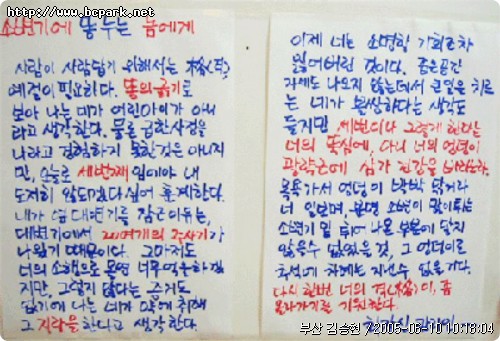 http://www.hcpark.net
소변기에 똥 누는 놈에게
사람이 사람답기 위해서는
예절이 필요하다. 똥의 굵기로
보아 나는 네가 어린아이가 아니
라고 생각한다. 물론 급한사정을
나라고 경험하지 못한것은 아니지
만, 오늘로 세번째 일이야 내
도저히 않되겠다 싶어 훈계한다.
내가 옆 대변기를 잠근이유는,
대변기에서 20여개의 주사기가
나왔기 때문이다. 그마저도
너의 소행으로 몬면 너무
지만, 그렇지 않다는 증거도
없기에 나는 네가 약에 취해
그 지랄을 한다고 생각한다.
이제 너는 소명할 기회조차
잃어버린 것이다. 좁은공간
자세도 나오지 않는데서 큰일을 치르
는 네가 불쌍하다는 생각도
들지만, 세번이나 그렇게 한다는
너의 똥심에, 다시 너의 엉덩이
괄약근에 삼가
목욕가서 엉덩이 빡빡 닦거라
너 일보며, 분명 소변이 말이튀는
소변기 밑 튀어 나온 부분에 닿지
않을수 없었을 것, 그 엉덩이로
좌석에 차에는 지선수 없을거다.
다시 한번 너의
기원한다.
부산 김승현 / 2005-06-10 10:18:04